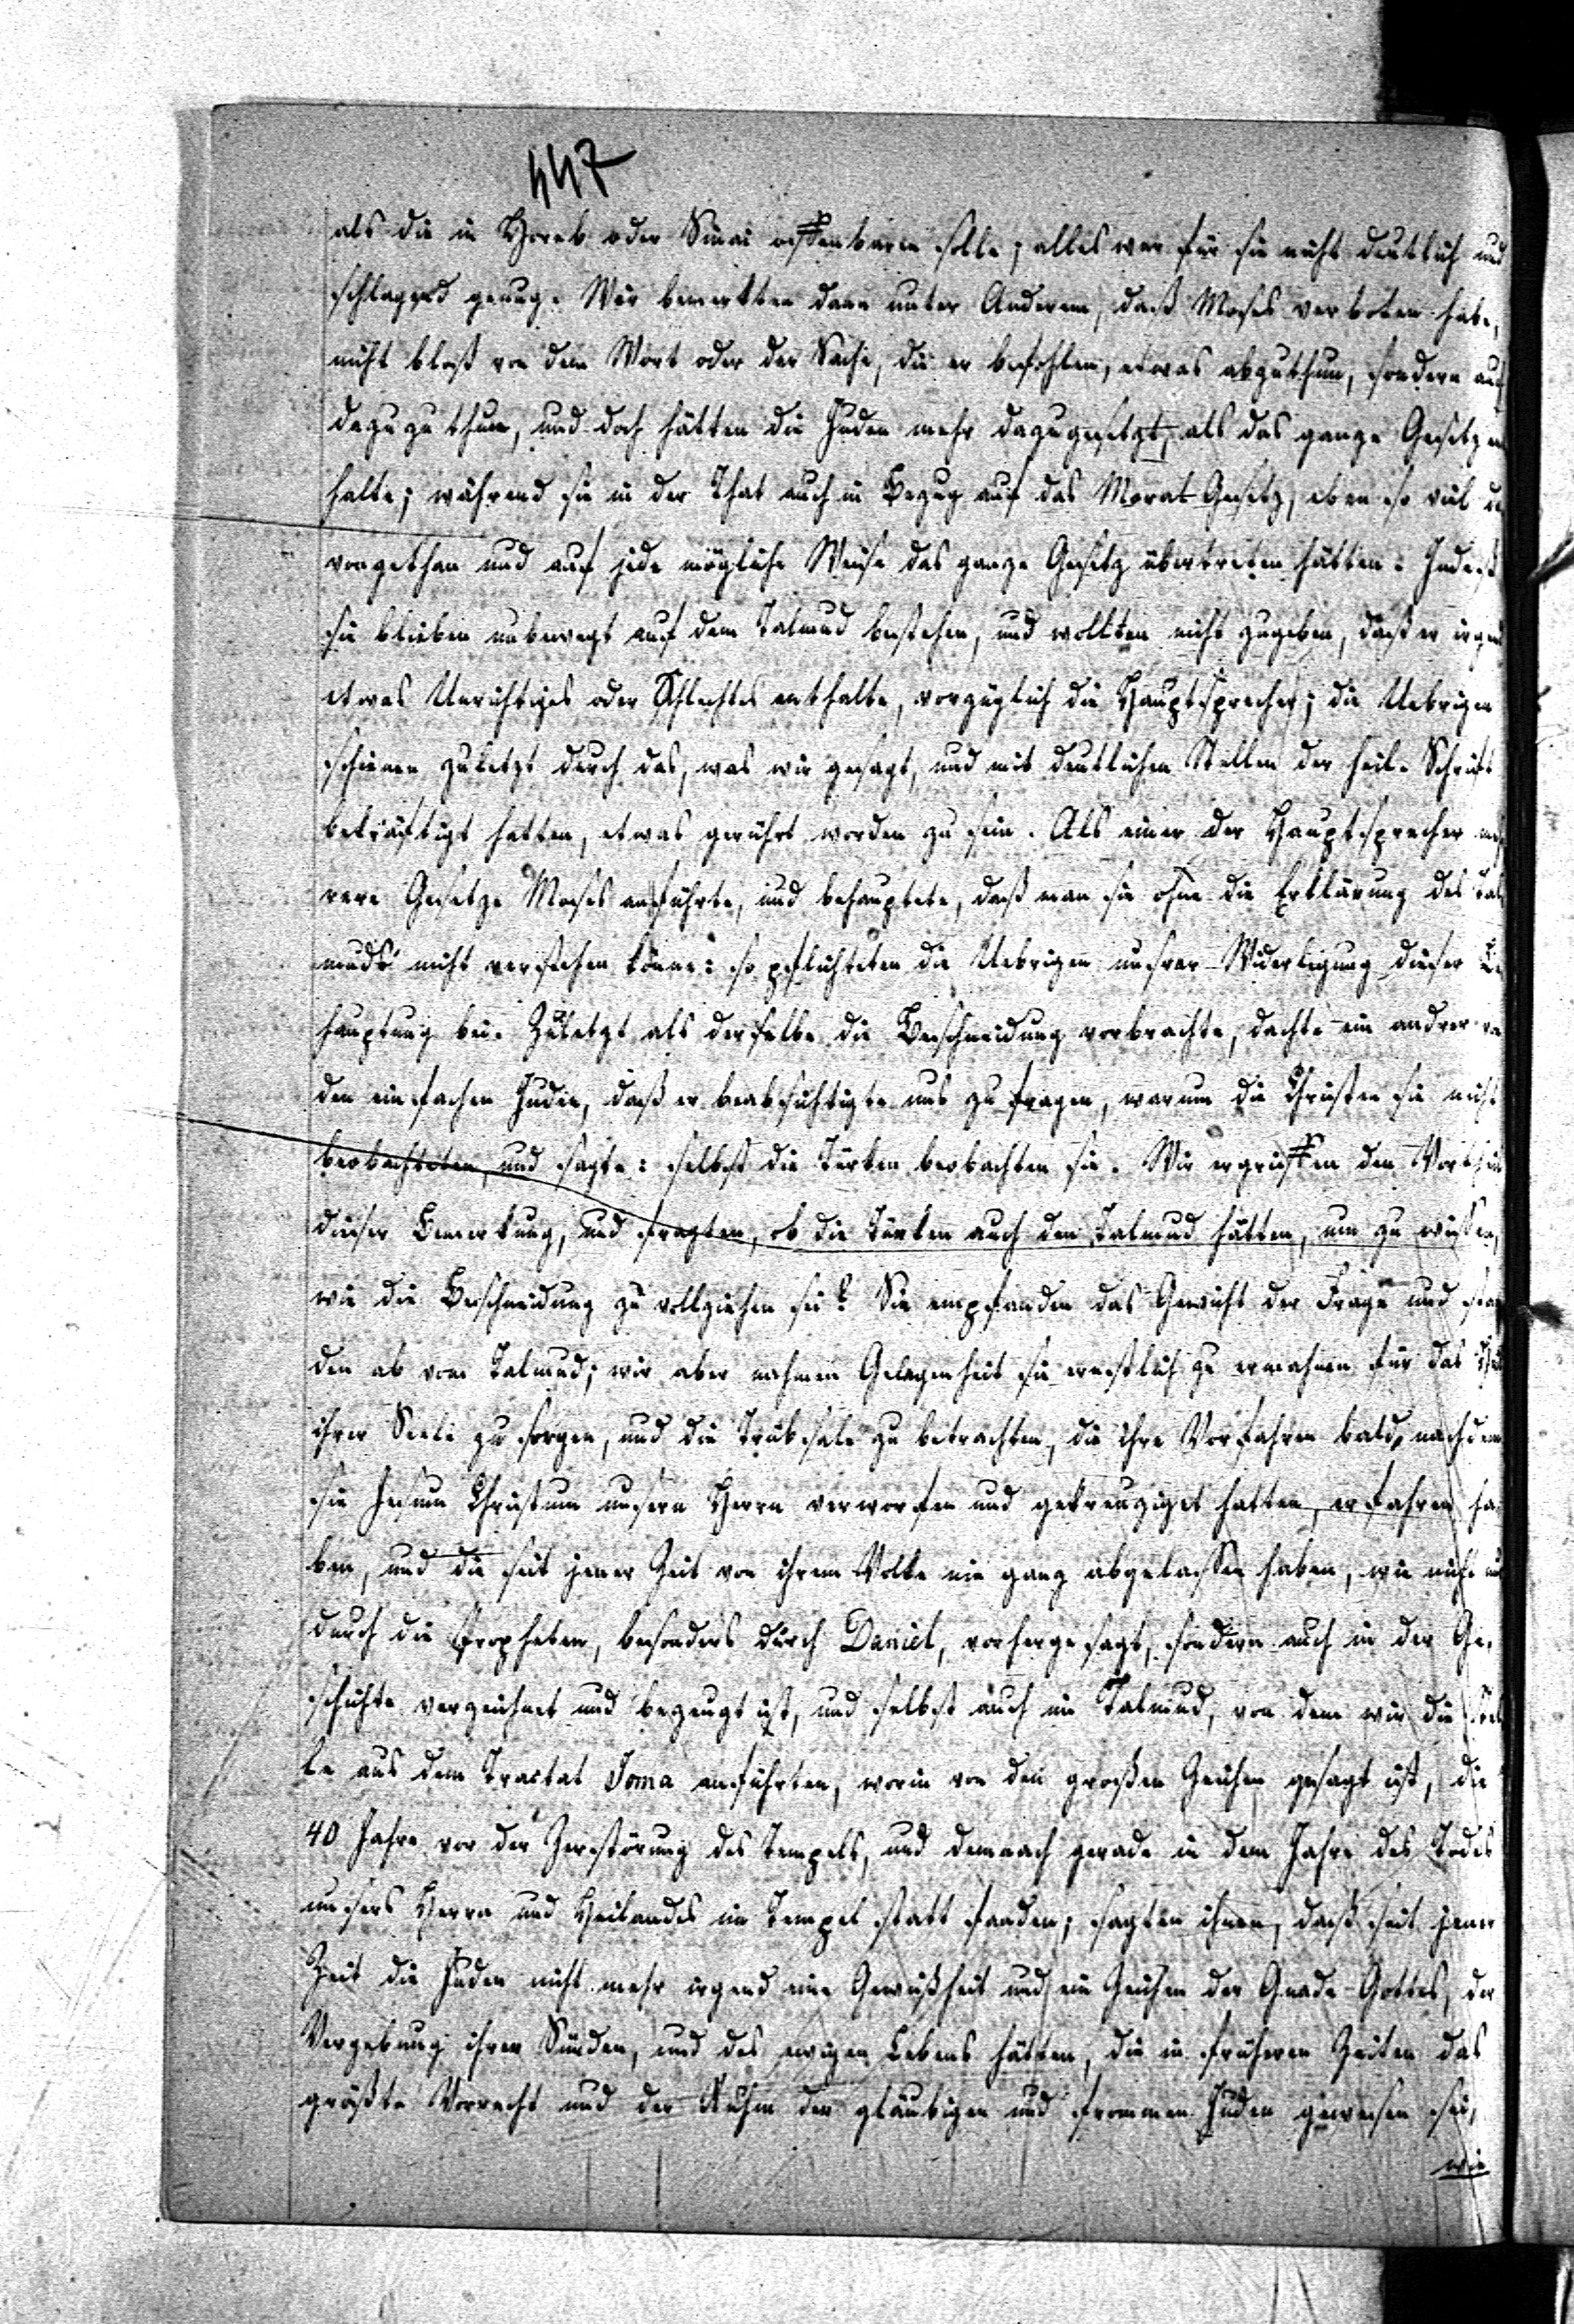 447
als die in Horeb oder Sinai offenbaren solle; alles war für sie nicht deutlich und
schlagend genug. Wir bemerkten dann unter Anderem, daß Moses verboten habe,
nicht bloß von dem Wort oder der Sache, die er befohlen, etwas abzuthun, sondern auch
dazu zu thun, und doch hätten die Juden mehr dazugesetzt, als das ganze Gesetz ent
halte; während sie in der That auch in Bezug auf das Moral-Gesetz, eben so viel da
vongethan und auf jede mögliche Weise das ganze Gesetz übertreten hätten. Indeß
sie blieben unbewegt auf dem Talmud bestehen, und wollten nicht zugeben, daß er irgend
etwas Unrichtiges oder Schlechtes enthalte, vorzüglich die Hauptsprecher; die Uebrigen
schienen zuletzt durch das, was wir gesagt, und mit deutlichen Stellen der heil. Schrift
bekräftigt hatten, etwas gerührt worden zu sein. Als einer der Hauptsprecher meh
rere Gesetze Moses anführte, und behauptete, daß man sie ohne die Erklärung des Tal
muds nicht verstehen könne: so pflichteten die Uebrigen unsrer Widerlegung dieser Be
hauptung bei. Zuletzt als derselbe die Beschneidung vorbrachte, dachte ein andrer von
den einfachen Juden, daß er beabsichtigte uns zu fragen, warum die Christen sie nicht
beobachteten, und sagte: selbst die Türken beobachten sie. Wir ergriffen den Vortheil
dieser Bemerkung, und fragten, ob die Türken auch den Talmud hätten, um zu wissen,
wie die Beschneidung zu vollziehen sei? Sie empfanden das Gewicht der Frage und stan
den ab vom Talmud; wir aber nahmen Gelegenheit sie ernstlich zu ermahnen für das Heil
ihrer Seele zu sorgen, und die Trübsale zu betrachten, die ihre Vorfahren bald, nachdem
sie Jesum Christum unsern Herrn verworfen und gekreuziget hatten, erfahren ha
ben, und die seit jener Zeit von ihrem Volke nie ganz abgelassen haben, wie nicht nur
durch die Propheten, besonders durch Daniel, vorhergesagt, sondern auch in der Ge-
schichte verzeichnet und bezeugt ist, und selbst auch im Talmud, von dem wir die Stel
le aus dem Tractat Joma anführten, worin von den großen Zeichen gesagt ist, die
40 Jahre vor der Zerstörung des Tempels, und demnach gerade in dem Jahre des Todes
unsers Herrn und Heilandes im Tempel statt fanden; sagten ihnen, daß seit jener
Zeit die Juden nicht mehr irgend eine Gewißheit und ein Zeichen der Gnade Gottes, der
Vergebung ihrer Sünden, und des ewigen Lebens hätten, die in früheren Zeiten das
größte Vorrecht und der Ruhm der gläubigen und frommen Juden gewesen sei,
wie